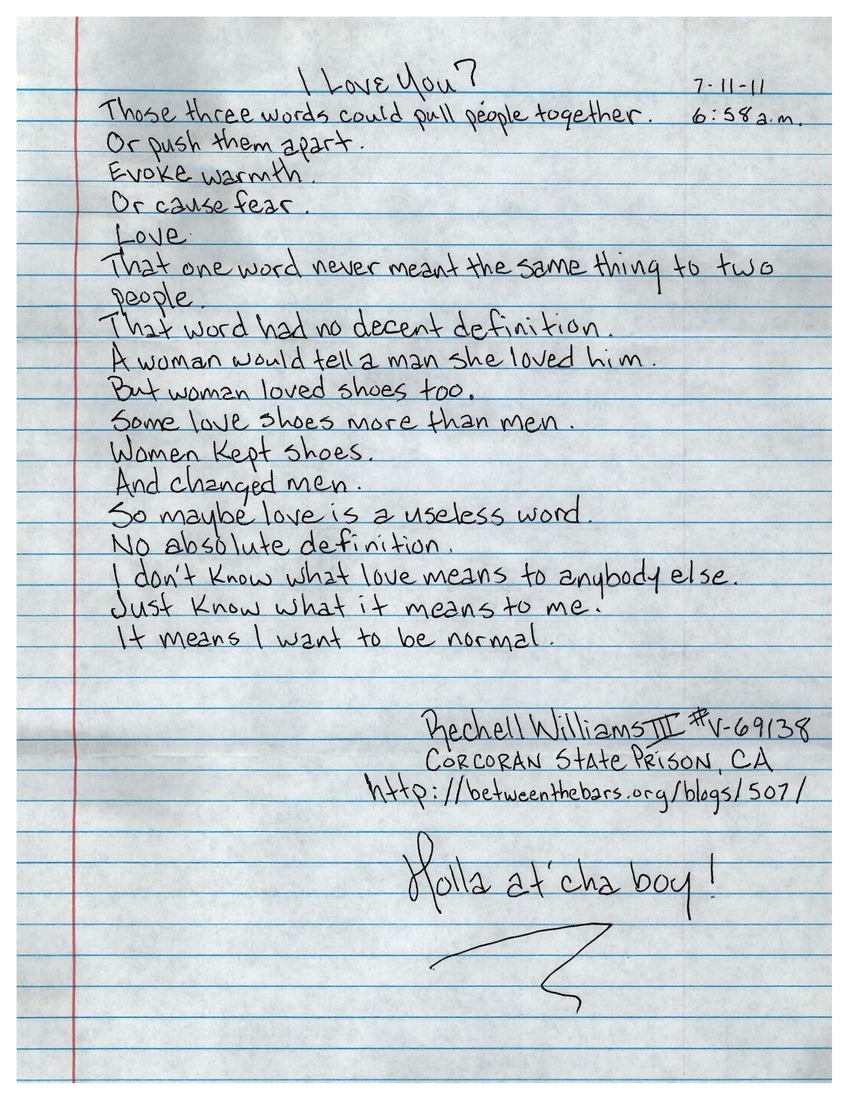 I Love You?
7-11-11
Those three words could pull people together. 6:58 a.m.
Or push them apart.
Evoke warmth.
Or cause fear.
Love.
That one word never meant the same thing to two
people.
That word had no decent definition.
A woman would tell a man she loved him.
But woman loved shoes too.
Some love shoes more than men.
Women Kept shoes.
And changed men.
So maybe love is a useless word.
No absolute definition.
I don't Know what love means to anybody else.
Just Know what it means to me.
It means I want to be normal.
Rechell Williams III #V-69138
CORCORAN State PRISON, CA
http://betweenthebars.org/blogs/507/
Holla at'cha boy!